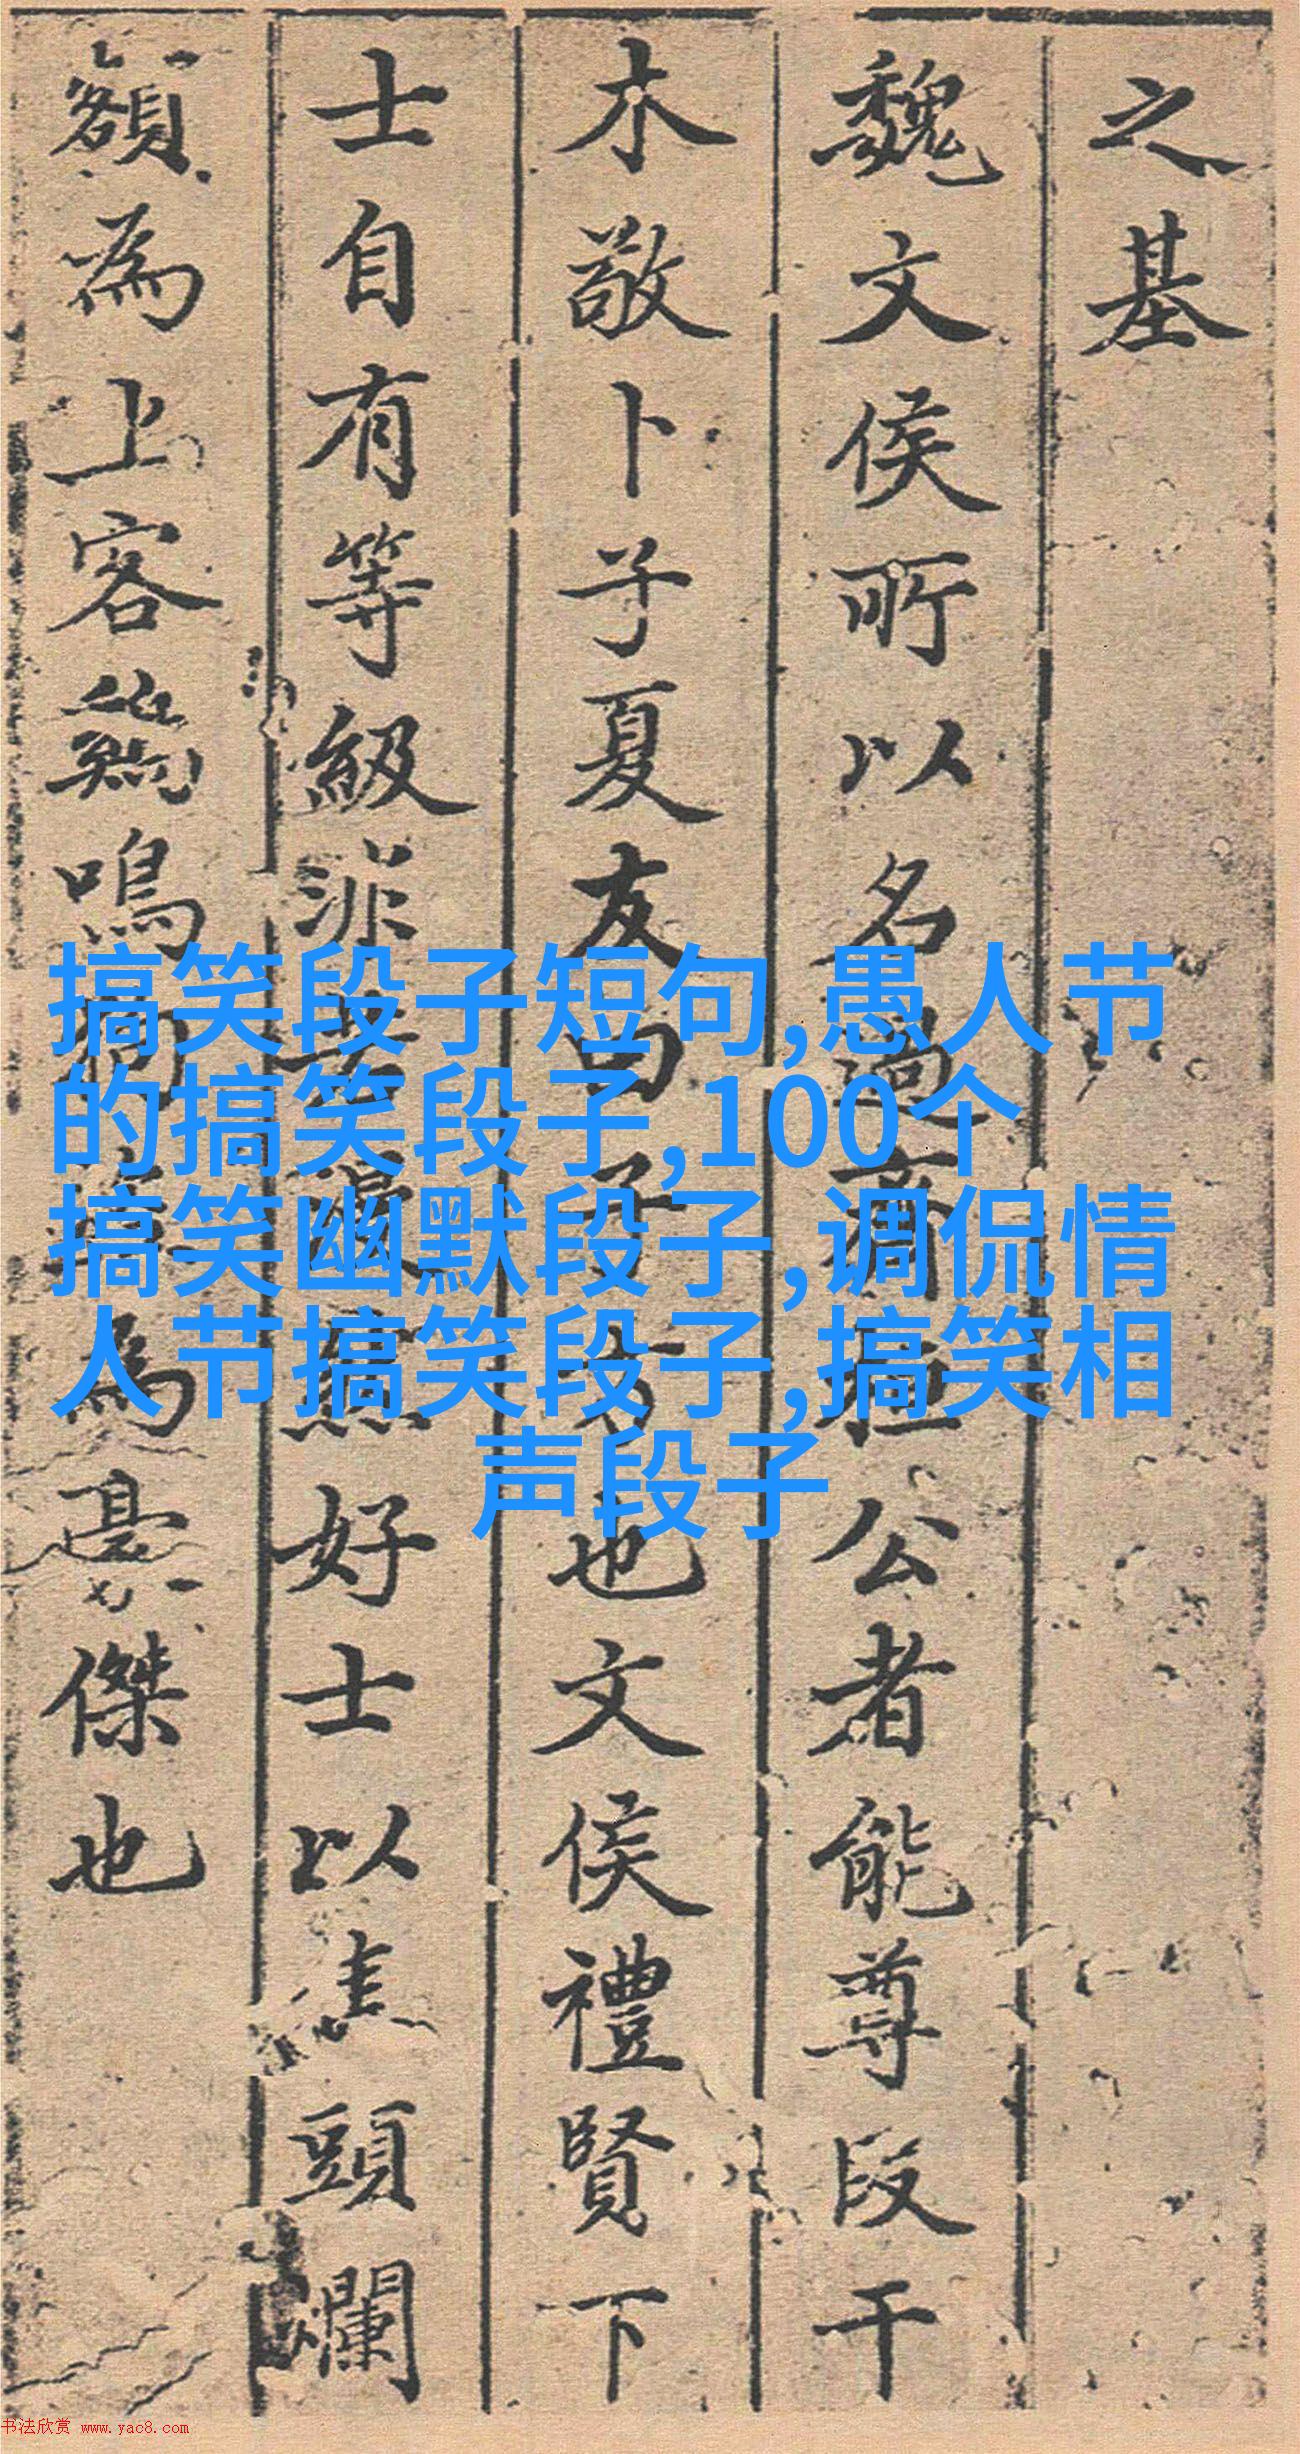 之基
魏文侯所以名過齊桓公者能尊段干
木敬卜子夏友田子方也文侯禮賢下
士自有等級非若好士以焦頭爛
額為上客鷄鳴狗為豪傑也
搞笑段子短句,愚人节
的搞笑段子,100个
搞笑幽默段子,调侃情
人节搞笑段子,搞笑相
声段子
书法欣赏 www.yac8.com